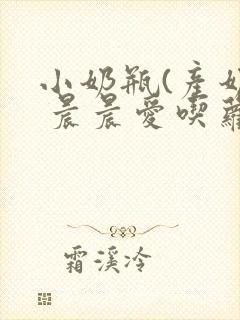 小奶瓶(產奶
晨晨愛喫蘿
霜溪冷